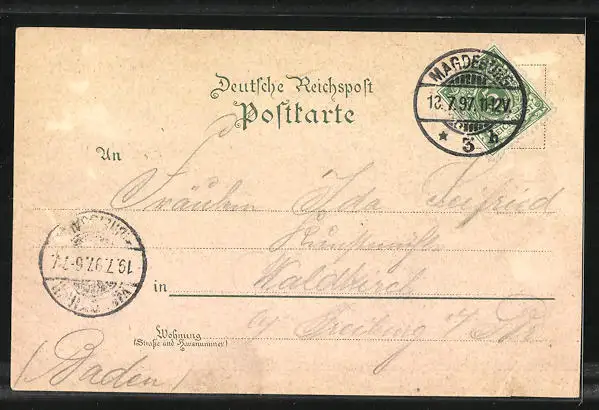 Deutsche Reichspost
Postkarte
MAGDEBURG
13.7.97.11-12V.
* 3 b
An
Fräulein Ida Seifried
19.7.97.6-7
in Waldkirch
b/ Freiburg i/
Wohnung
(Straße und Hausnummer)
(Baden)